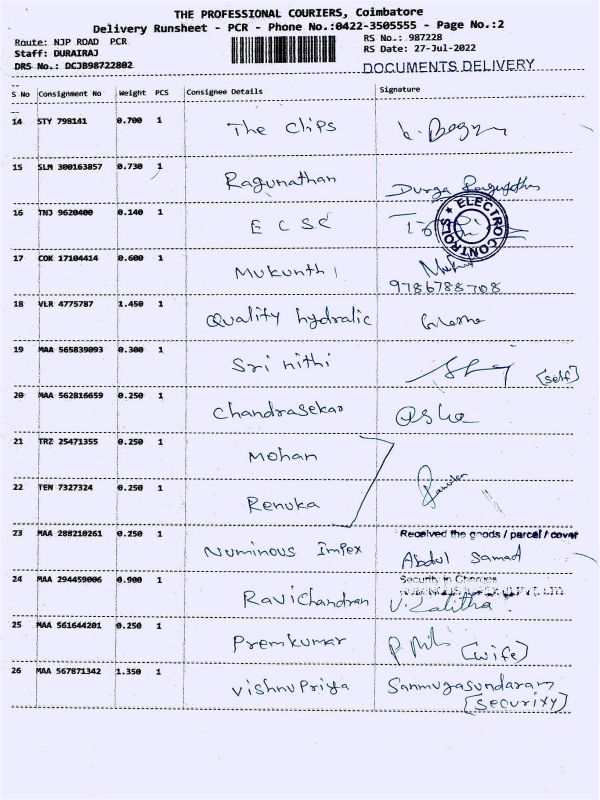 THE PROFESSIONAL COURIERS, Coimbatore
Delivery Runsheet - PCR - Phone No.:0422-3505555 - Page No.:2
Route: NJP ROAD PCR
RS No.: 987228
Staff: DURAIRAJ
RS Date: 27-Jul-2022
DRS No.: DCJB98722802
DOCUMENTS DELIVERY
S No Consignment No Weight PCS Consignee Details Signature
14 STY 798141 0.700 1 The Clips
15 SLM 300163857 0.730 1 Ragunathan Durga
16 TNJ 9620400 0.140 1 E C S C
★ ELECTRO CONTROLS
17 COK 17104414 0.600 1 Mukunthi
9786788708
18 VLR 4775787 1.450 1 Quality hydralic
19 MAA 565839093 0.300 1 Sri nithi [self]
20 MAA 562816659 0.250 1 Chandrasekar Asha
21 TRZ 25471355 0.250 1 Mohan
22 TEN 7327324 0.250 1 Renuka
23 MAA 288210261 0.250 1 Numinous Impex
Received the goods / parcel / cover
Abdul Samad
Security in Charges
24 MAA 294459006 0.900 1 Ravichandran V. Lalitha
25 MAA 561644201 0.250 1 Premkumar [wife]
26 MAA 567871342 1.350 1 Vishnupriya Sanmugasundaram
[securixy]